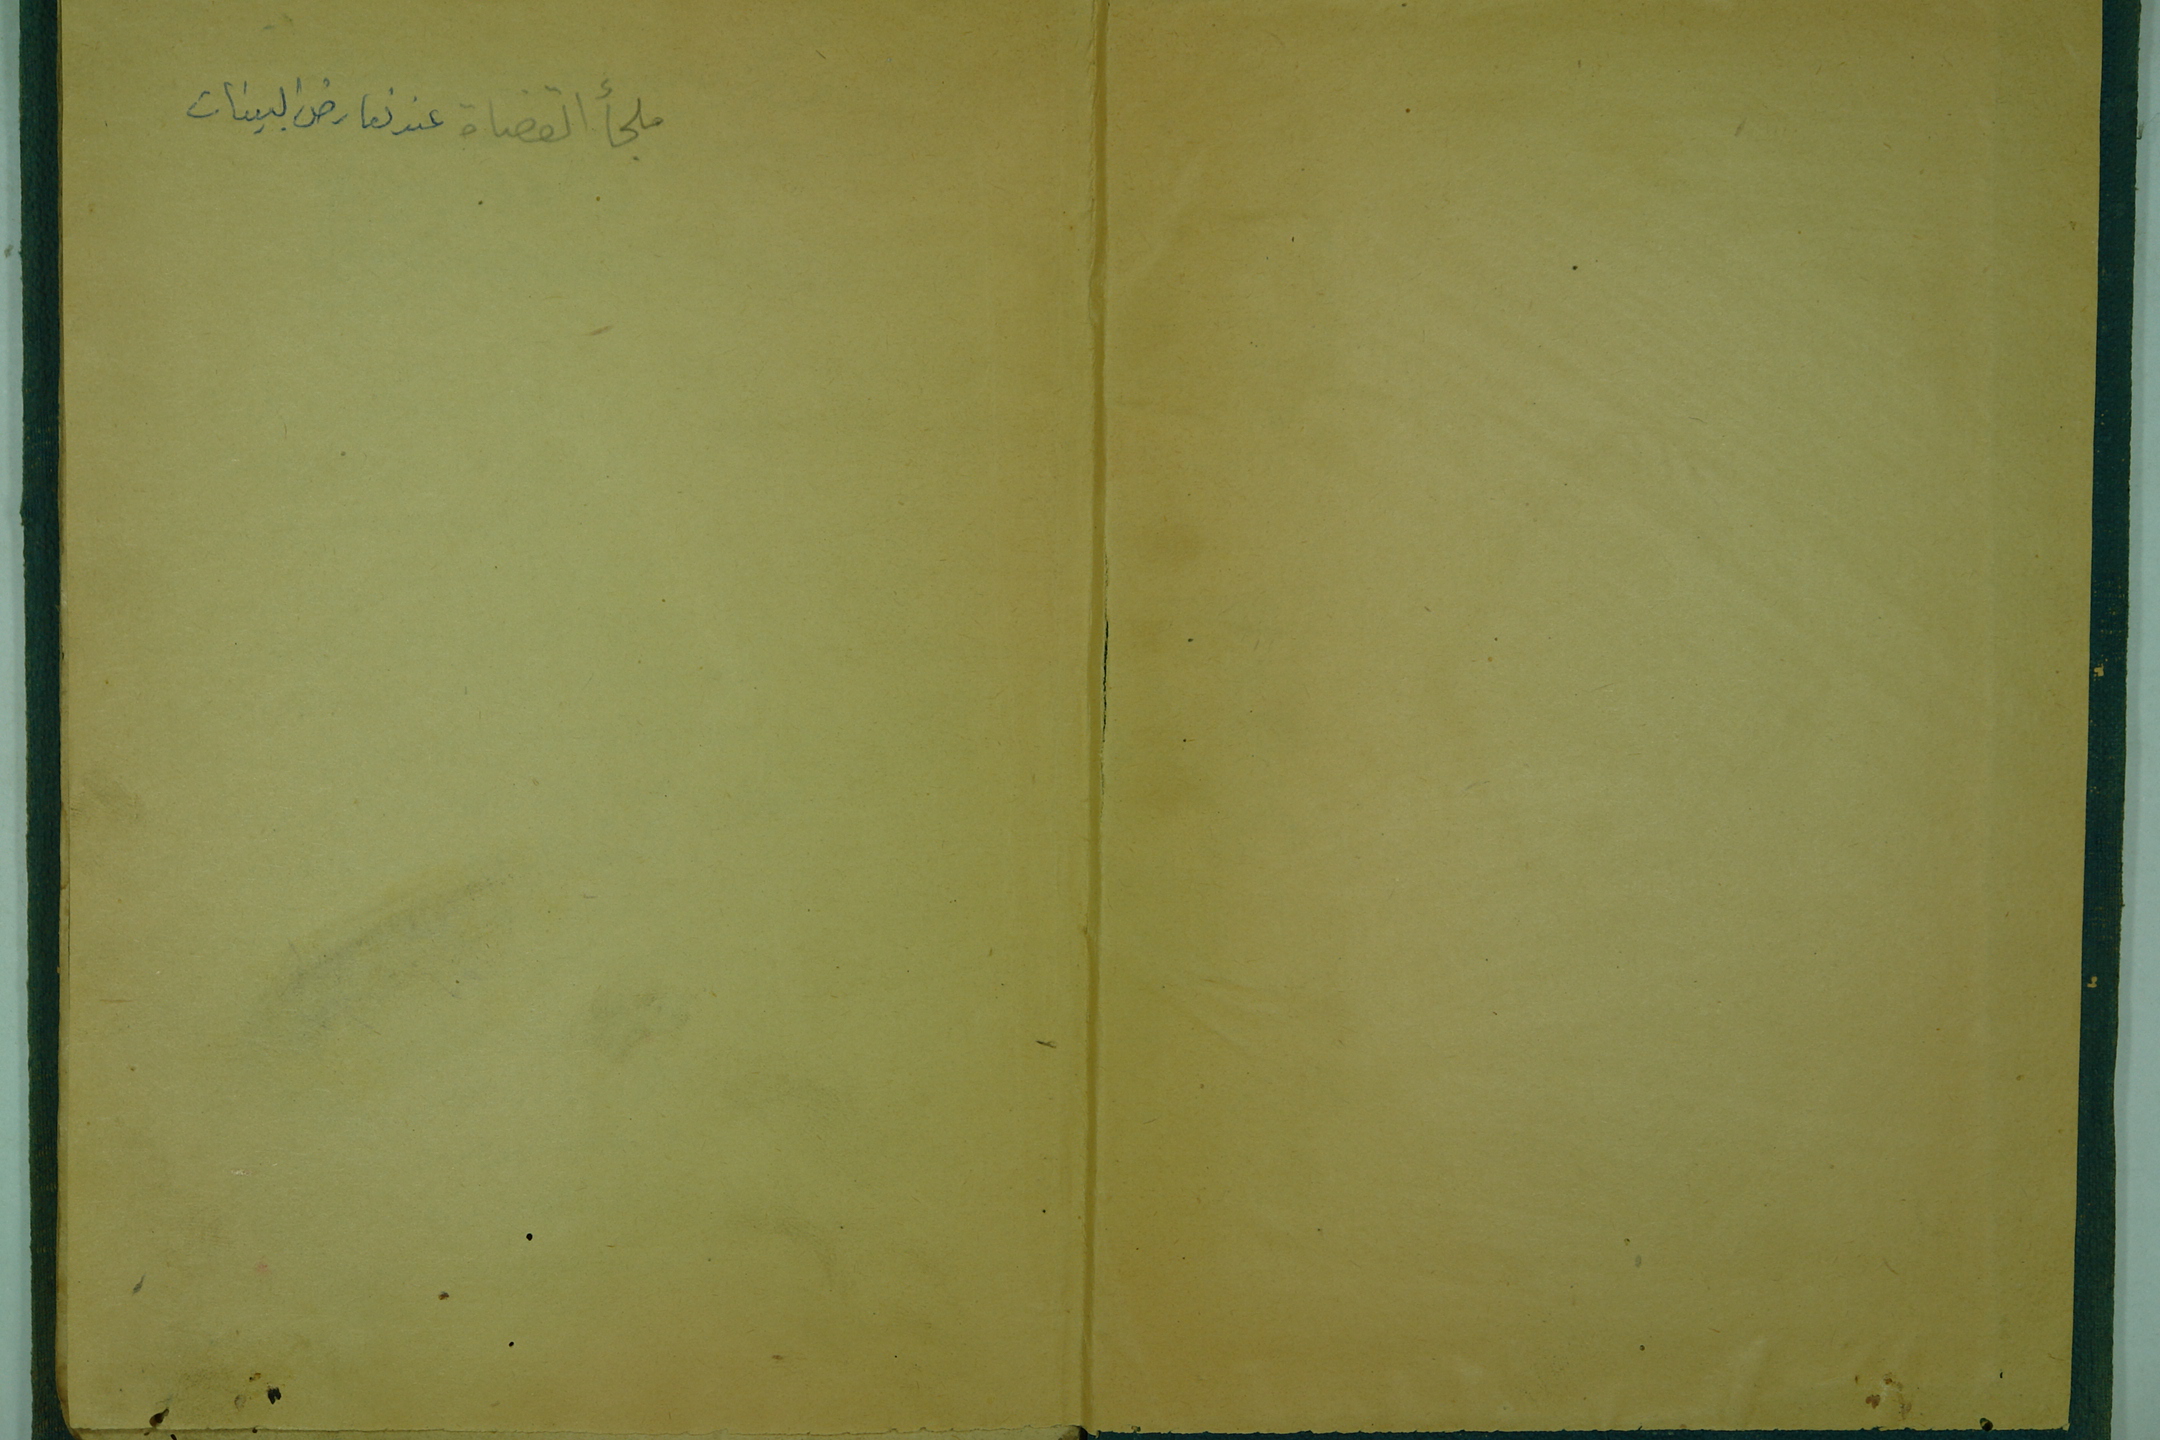 ملجأ القضاة عند تعارض البينات